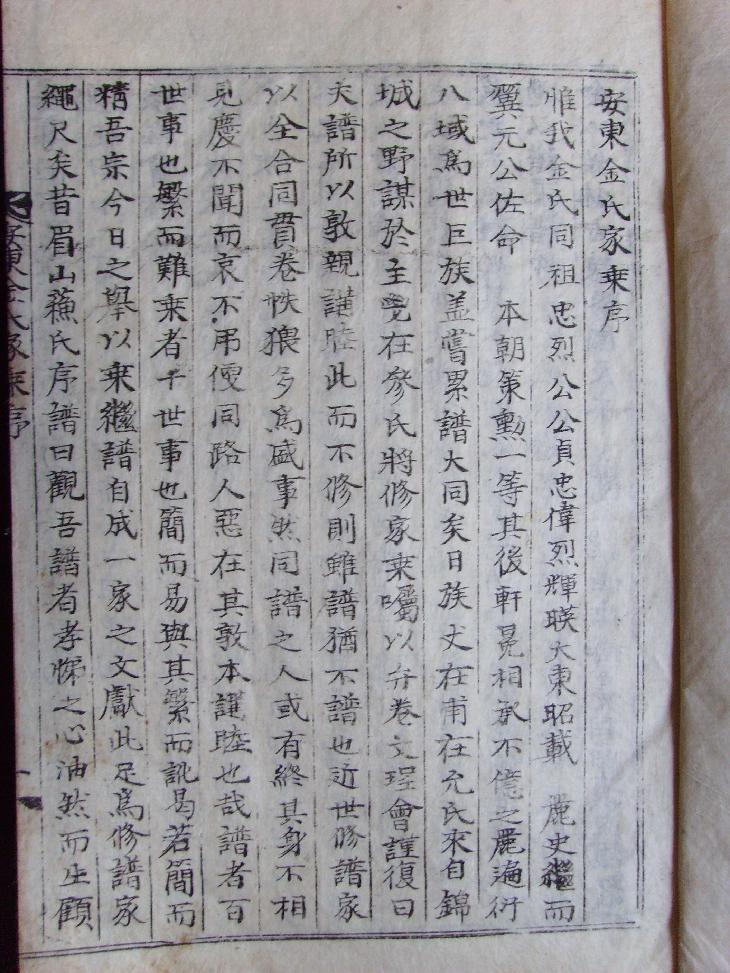 安東金氏家乗序
惟我金氏同祖忠烈公公貞忠偉烈輝暎大東昭載 麗史繼而
翼元公佐命 本朝策勳一等其後軒冕相承不億之麗遍衍
八域爲世巨族盖嘗累譜大同矣日族丈在甫在允氏來自錦
城之野謀於主鬯在參氏將修家乗囑以弁卷文珵會謹復曰
夫譜所以敦親講睦此而不修則雖譜猶不譜也近世修譜家
以全合同貫卷帙猥多爲盛事然同譜之人或有終其身不相
見慶不聞而哀不吊便同路人惡在其敦本講睦也哉譜者百
世事也繁而難乗者千世事也簡而易與其繁而訛曷若簡而
精吾宗今日之舉以乗繼譜自成一家之文獻此足爲修譜家
繩尺矣昔眉山蘓氏序譜曰觀吾譜者孝悌之心油然而生顧
安東金氏家乗序
一